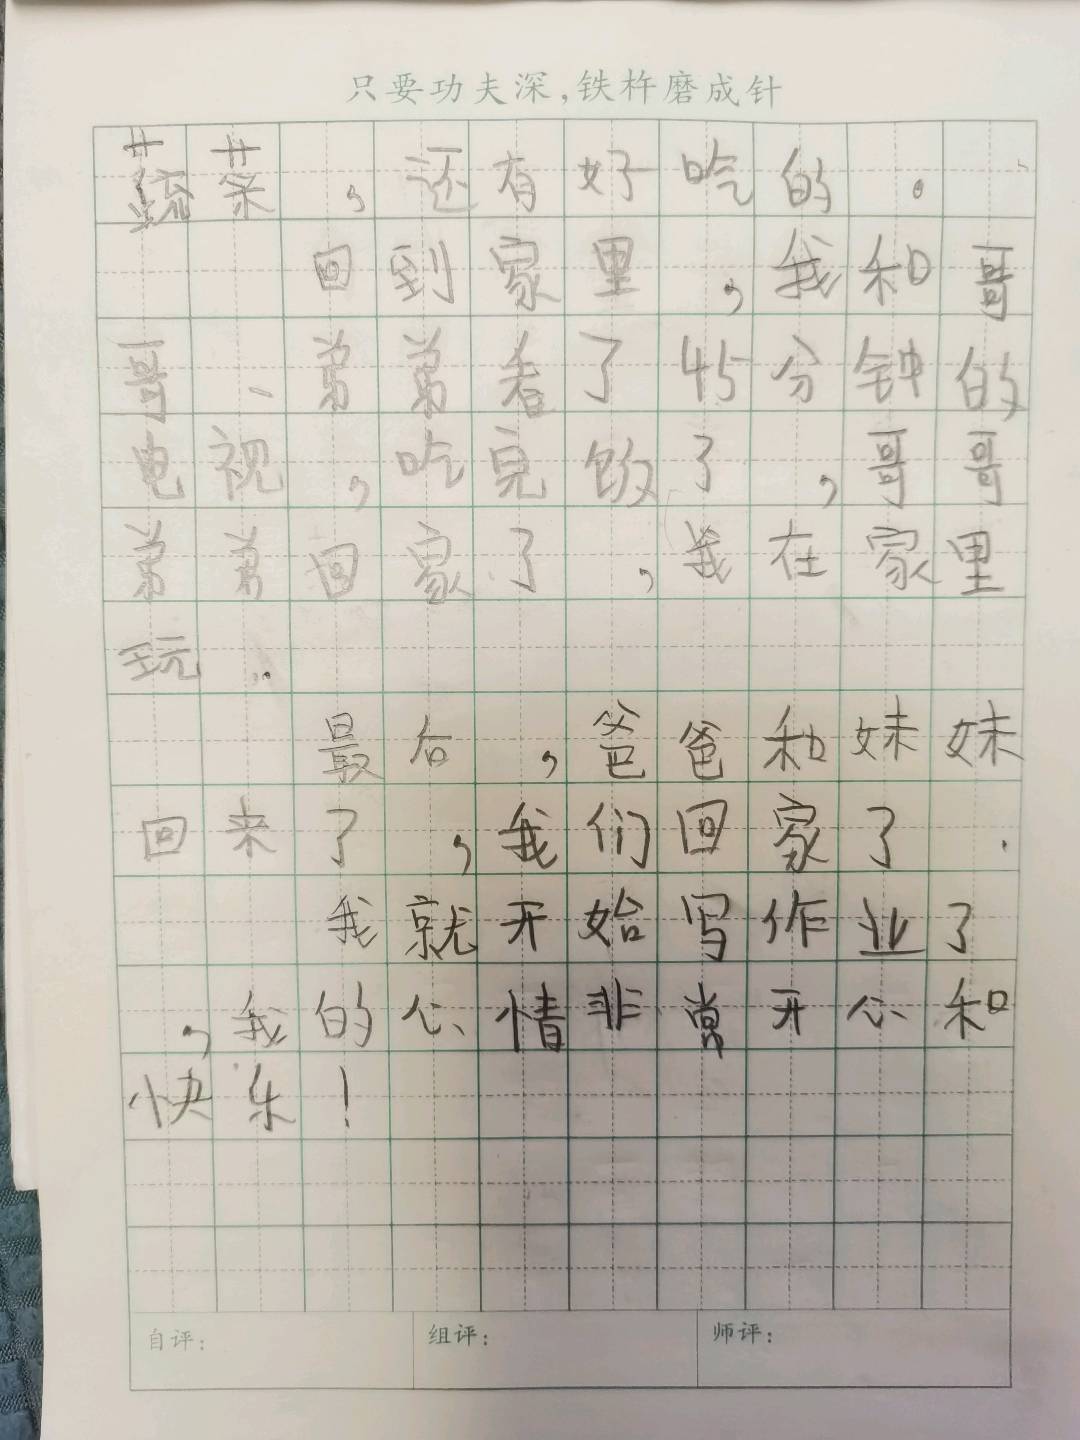 只要功夫深，铁杵磨成针
蔬菜，还有好吃的。
回到家里，我和哥
哥、弟弟看了45分钟的
电视，吃完饭了，哥哥
弟弟回家了，我在家里
玩。
最后，爸爸和妹妹
回来了，我们回家了.
我就开始写作业了
，我的心情非常开心和
快乐！
自评： 组评： 师评：